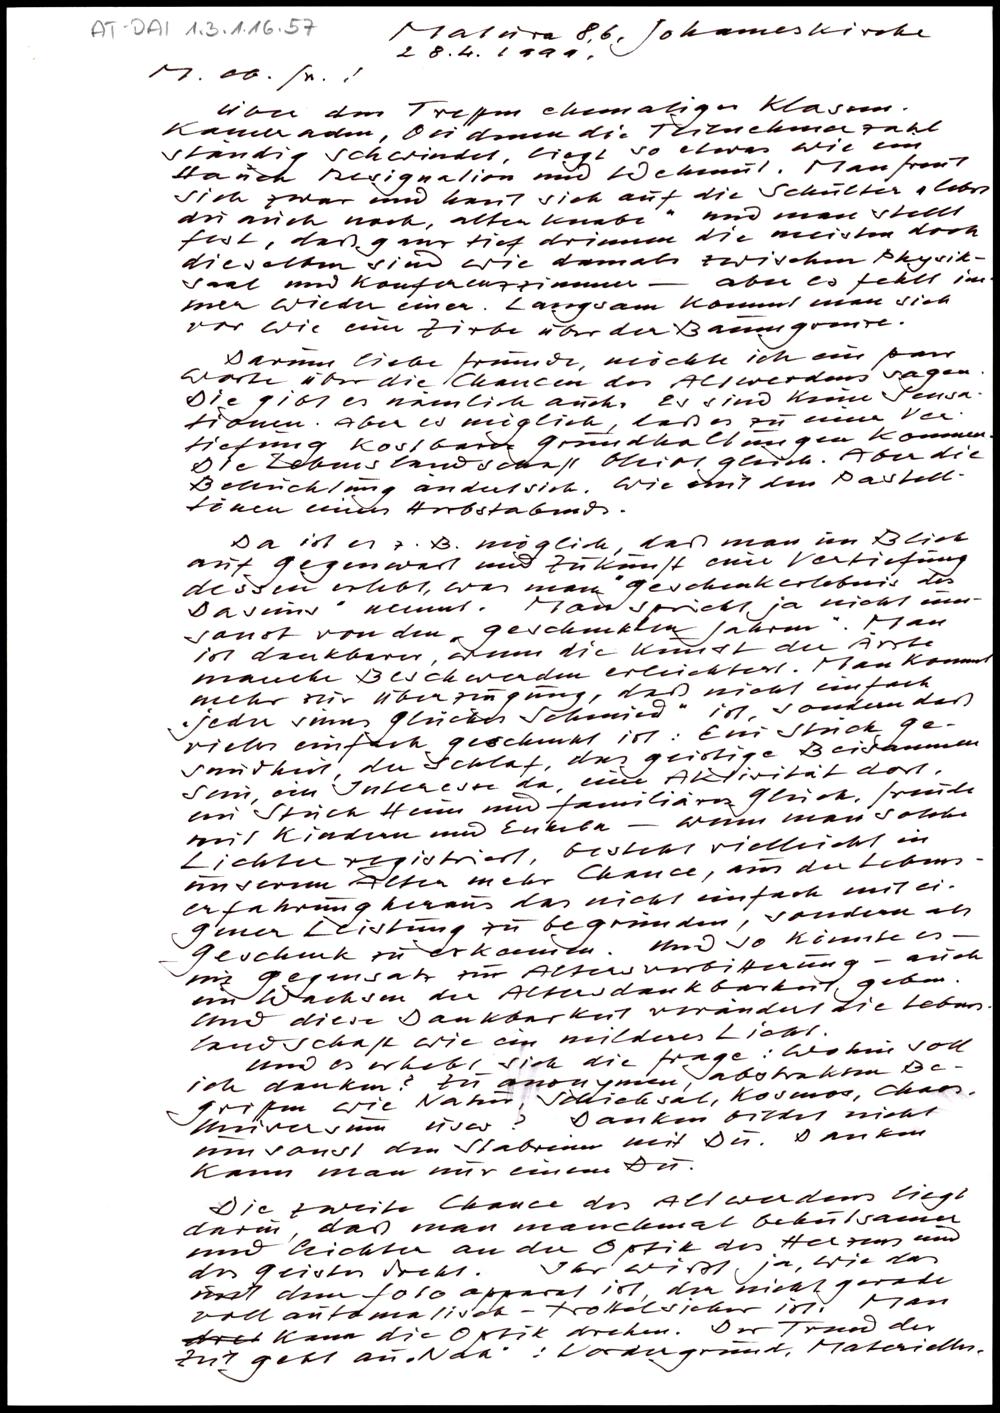 AT-DAI 1.3.1.16.57
Matura 8.b, Johanneskirche
28.4.1999.
M. 
Über dem Treffen ehemaliger Klassen-
kameraden, bei denen die Teilnehmerzahl
ständig schwindet, liegt so etwas wie ein
Hauch Resignation und Wehmut. Man freut
sich zwar und haut sich auf die Schulter „lebst
du auch noch, alter Knabe" und man stellt
fest, daß ganz tief drinnen die meisten doch
dieselben sind wie damals zwischen Physik-
saal und Konferenzzimmer — aber es fehlt im-
mer wieder einer. Langsam kommt man sich
vor wie eine Zirbe über der Baumgrenze.
Darum liebe Freunde, möchte ich ein paar
Worte über die Chancen des Altwerdens sagen.
Die gibt es nämlich auch. Es sind keine Sensa-
tionen. Aber es möglich, daß es zu einer Ver-
tiefung kostbarer Grundhaltungen kommen.
Die Lebenslandschaft bleibt gleich. Aber die
Beleuchtung ändert sich. Wie mit den Pastell-
tönen eines Herbstabends.
Da ist es z. B. möglich, daß man im Blick
auf Gegenwart und Zukunft eine Vertiefung
dessen erlebt, was man "Geschenkerlebnis des
Daseins" nennt. Man spricht ja nicht um-
sonst von den „geschenkten Jahren". Man
ist dankbarer, wenn die Kunst der Ärzte
manche Beschwerden erleichtert. Man kommt
mehr zur Überzeugung, daß nicht einfach
„jeder seines Glückes Schmied" ist, sondern daß
vieles einfach geschenkt ist: Ein Stück Ge-
sundheit, der Schlaf, das geistige Beisammen
sein, ein Interesse da, eine Aktivität dort,
ein Stück Heim und familiäres Glück, Freude
mit Kindern und Enkeln — wenn man solche
Lichter registriert, besteht vielleicht in
unserem Alter mehr Chance, aus der Lebens-
erfahrung heraus das nicht einfach mit ei-
gener Leistung zu begründen, sondern als
Geschenk zu erkennen. Und so könnte es —
im Gegensatz zur Altersverbitterung – auch
ein Wachsen der Altersdankbarkeit geben.
Und diese Dankbarkeit verändert die Lebens-
landschaft wie ein milderes Licht.
Und es erhebt sich die Frage: Wohin soll
ich danken? Zu anonymen, abstrakten Be-
griffen wie Natur, Schicksal, Kosmos, Chaos,
Universum usw? Danken bildet nicht
umsonst den Stabreim mit Du. Danken
kann man nur einem Du.
Die zweite Chance des Altwerdens liegt
darin, daß man manchmal behutsamer
und leichter an der Optik des Herzens und
des Geistes dreht. Ihr wißt ja, wie das
mit dem Fotoapparat ist, der nicht gerade
vollautomatisch-trottelsicher ist. Man
kann die Optik drehen. Der Trend der
Zeit geht auf „Nah": Vordergrund, Materielles,